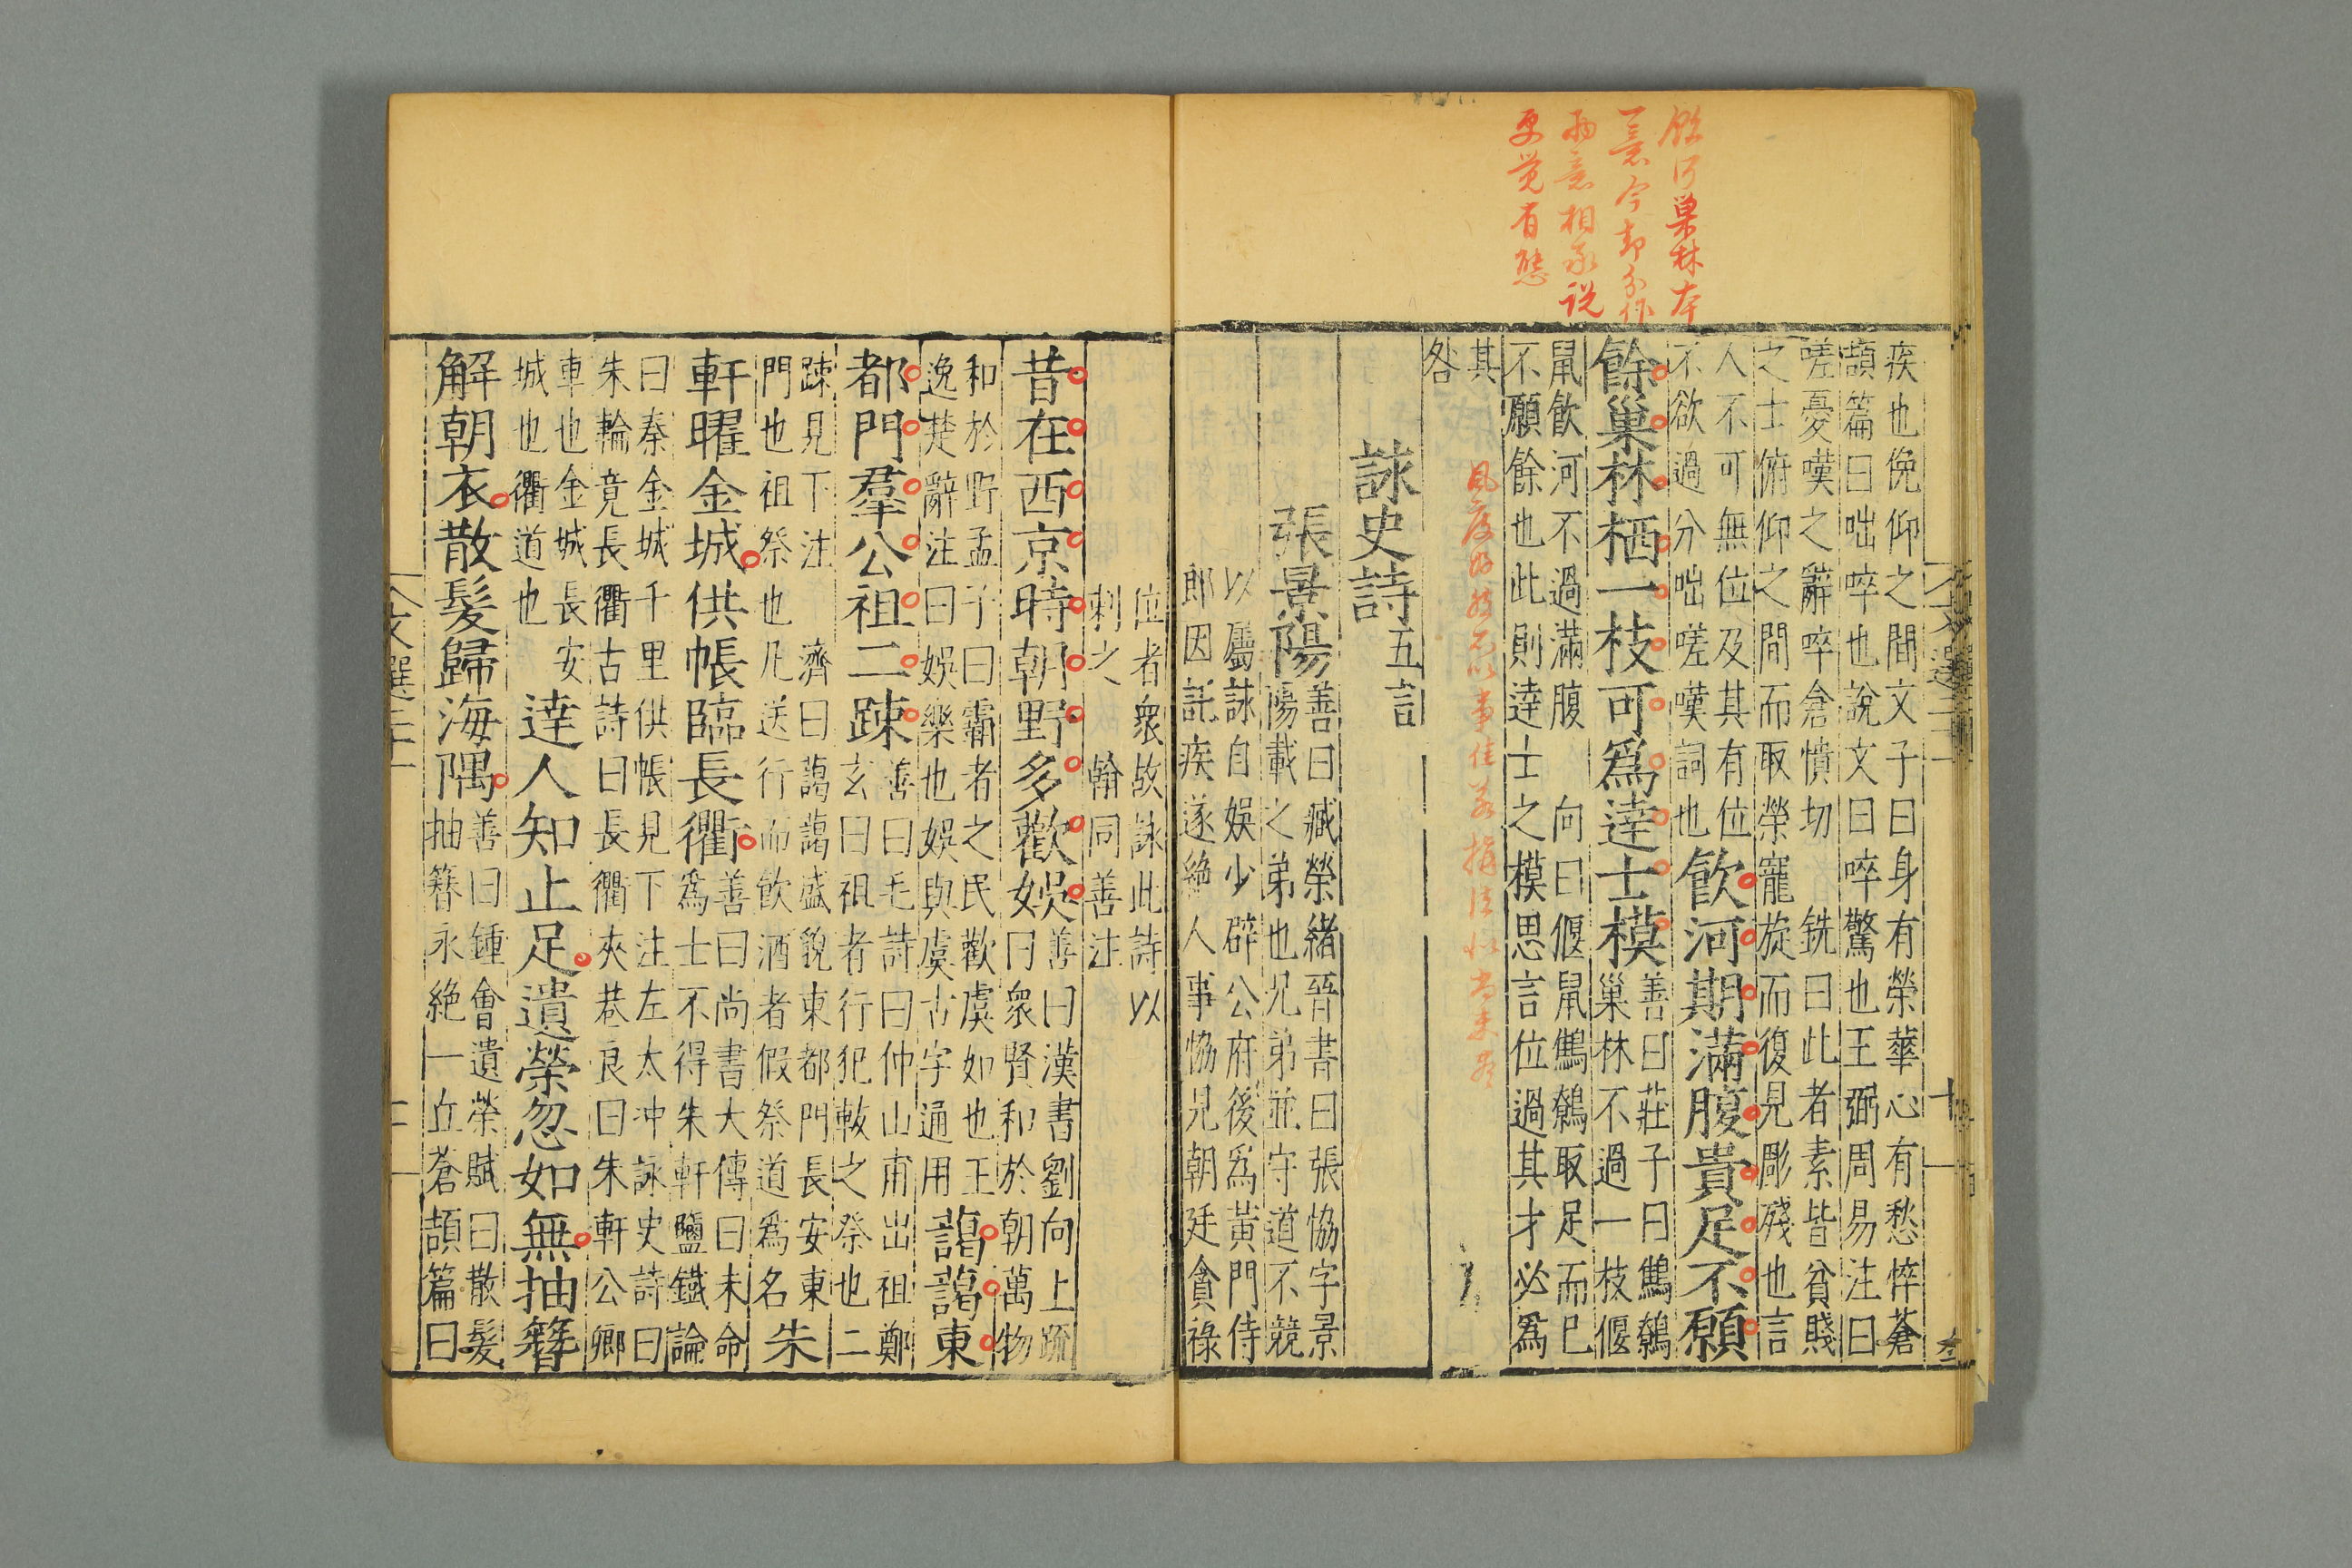 飲河巢林本
一意今却分作
兩意相承說
更覺有態
疾也俛仰之間文子曰身有榮華心有愁悴蒼
頡篇曰咄啐也說文曰啐驚也王弼周易注曰
嗟憂嘆之辭啐倉憒切　銑曰此者素皆貧賤
之士俯仰之間而取榮寵旋而復見彫殘也言
人不可無位及其有位
不欲過分咄嗟嘆詞也
飲河期滿腹貴足不願
餘巢林栖一枝可爲達士模
善曰莊子曰鷦鷯
巢林不過一枝偃
鼠飲河不過滿腹　向曰偃鼠鷦鷯取足而已
不願餘也此則達士之模思言位過其才必爲
其
咎
詠史詩五言
張景陽
善曰臧榮緒晉書曰張協字景
陽載之弟也兄弟並守道不競
以屬詠自娛少辟公府後爲黃門侍
郎因託疾遂絶人事協見朝廷貪祿
位者衆故詠此詩以
刺之　翰同善注
昔在西京時朝野多歡娛
善曰漢書劉向上疏
曰衆賢和於朝萬物
和於野孟子曰霸者之民歡虞如也王
逸楚辭注曰娛樂也娛與虞古字通用
藹藹東
都門羣公祖二踈
善曰毛詩曰仲山甫出祖鄭
玄曰祖者行犯軷之祭也二
踈見下注　濟曰藹藹盛貌東都門長安東
門也祖祭也凡送行而飲酒者假祭道爲名
朱
軒曜金城供帳臨長衢
善曰尚書大傳曰未命
爲士不得朱軒鹽鐵論
曰秦金城千里供帳見下注左太冲詠史詩曰
朱輪竟長衢古詩曰長衢夾巷良曰朱軒公卿
車也金城長安
城也衢道也
達人知止足遺榮忽如無抽簪
解朝衣散髮歸海隅
善曰鍾會遺榮賦曰散髮
抽簪永絶一丘蒼頡篇曰